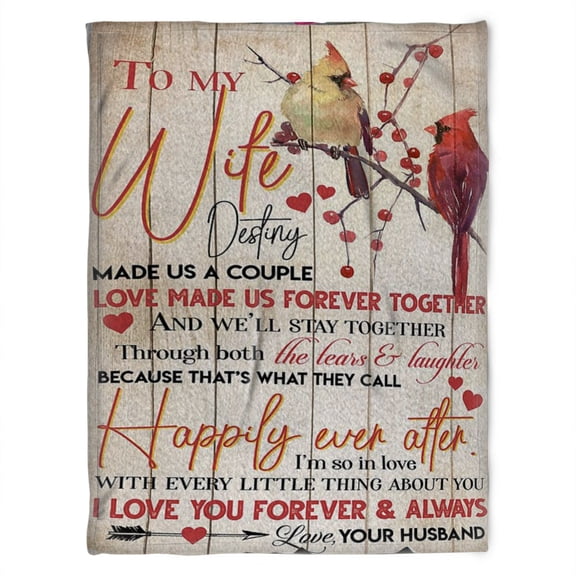 TO MY
Wife
Destiny
MADE US A COUPLE
LOVE MADE US FOREVER TOGETHER
AND WE'LL STAY TOGETHER
Through both the tears & laughter
BECAUSE THAT'S WHAT THEY CALL
Happily ever after.
I'm so in love
WITH EVERY LITTLE THING ABOUT YOU
I LOVE YOU FOREVER & ALWAYS
Love, YOUR HUSBAND